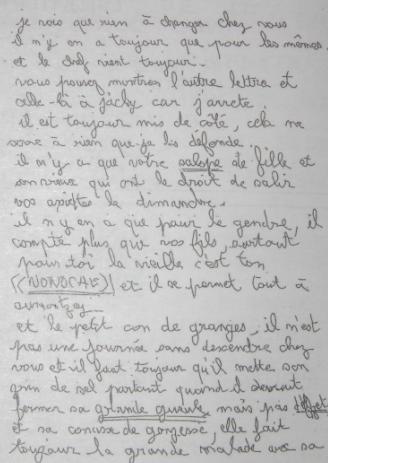 je vois que rien à changer chez vous
il n'y en a toujour que pour les mêmes.
et le chef vient toujour.
vous pouvez montrer l'autre lettre et
celle-là à jacky car j'arrete.
il est toujour mis de côté, cela ne
sere à rien que je les défende.
il n'y a que votre salope de fille et
son vieux qui ont le droit de salir
vos assiettes la dimanche.
il n y en a que pour le gendre, il
compte plus que vos fils, surtout
pour toi la vieille c'est ton
((NONOCAE)) et il se permet tout à
aumontzey
et le petit con de granges, il n'est
pas une journée sans descendre chez
vous et il faut toujour qu'il mette son
grin de sel partout quand il devrait
fermer sa grande gueule mais pas
et sa conasse de gonzesse, elle fait
toujour la grande malade avec sa